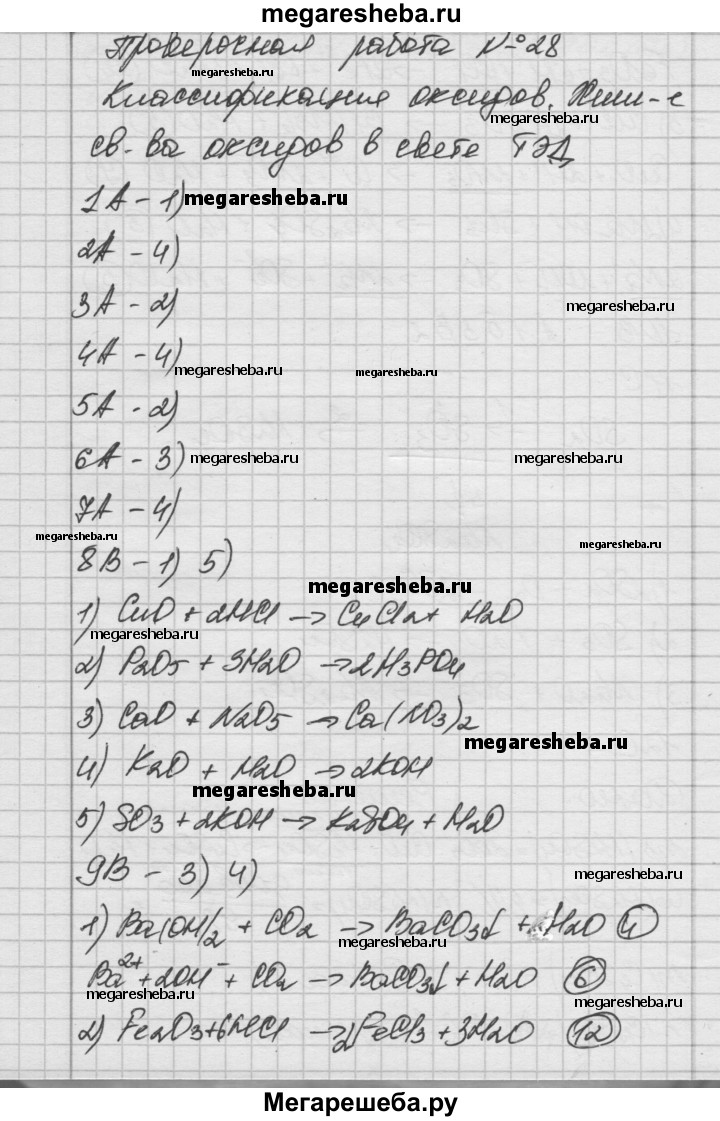 megaresheba.ru
Проверочная работа №28
megaresheba.ru
Классификация оксидов. Хим-е
megaresheba.ru
св-ва оксидов в свете ТЭД
1А - 1) megaresheba.ru
2А - 4)
3А - 2) megaresheba.ru
4А - 4) megaresheba.ru megaresheba.ru
5А - 2)
6А - 3) megaresheba.ru megaresheba.ru
7А - 4)
megaresheba.ru megaresheba.ru
8В - 1) 5)
megaresheba.ru
1) CuO + 2HCl → CuCl2 + H2O
megaresheba.ru
2) P2O5 + 3H2O → 2H3PO4
3) CaO + N2O5 → Ca(NO3)2
megaresheba.ru
4) K2O + H2O → 2KOH
megaresheba.ru
5) SO3 + 2KOH → K2SO4 + H2O
9В - 3) 4) megaresheba.ru
1) Ba(OH)2 + CO2 → BaCO3↓ + H2O 4
megaresheba.ru
Ba2+ + 2OH- + CO2 → BaCO3↓ + H2O 6
megaresheba.ru megaresheba.ru
2) Fe2O3 + 6HCl → 2FeCl3 + 3H2O 12
megaresheba.ru
Мегарешеба.ру